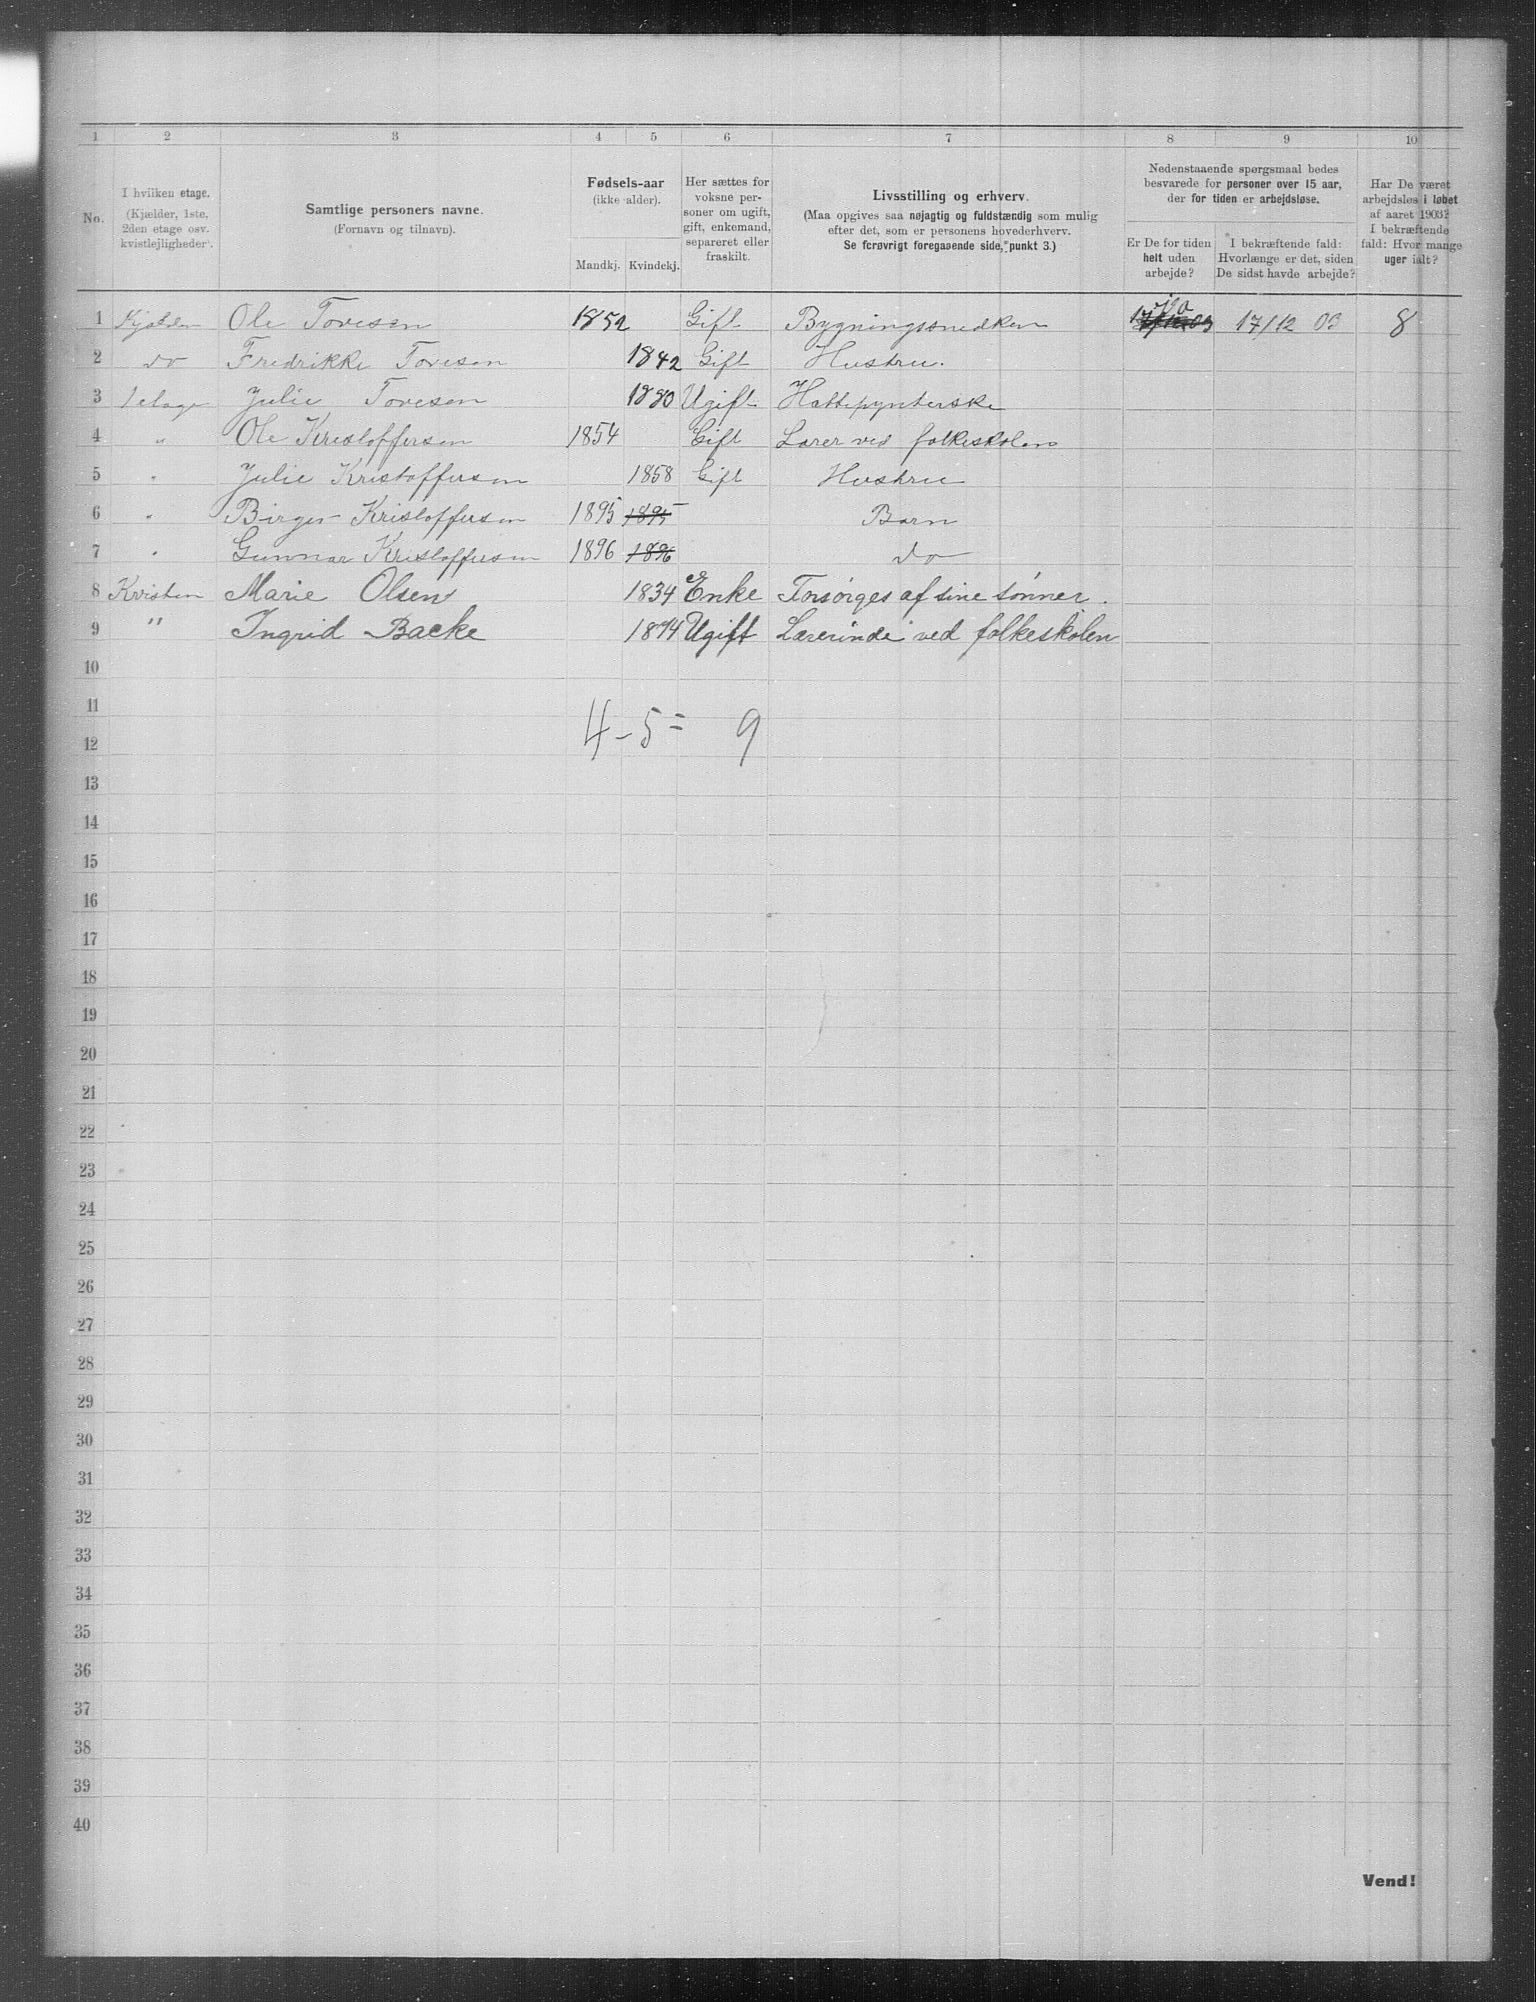 1 2 3 4 5 6 7 8 9 10
No.
I hvilken etage.
(Kjælder, 1ste,
2den etage osv.
kvistlejligheder).
Samtlige personers navne.
(Fornavn og tilnavn).
Fødsels-aar
(ikke alder).
Mandkj. Kvindekj.
Her sættes for
voksne per-
soner om ugift,
gift, enkemand,
separeret eller
fraskilt.
Livsstilling og erhverv.
(Maa opgives saa nøjagtig og fuldstændig som mulig
efter det, som er personens hovederhverv.
Se forøvrigt foregaaende side, punkt 3.)
Nedenstaaende spørgsmaal bedes
besvarede for personer over 15 aar,
der for tiden er arbejdsløse.
Er De for tiden
helt uden
arbejde?
I bekræftende fald:
Hvorlænge er det, siden
De sidst havde arbejde?
Har De været
arbejdsløs i løbet
af aaret 1903?
I bekræftende
fald: Hvor mange
uger ialt?
1 Kjælder Ole Tovesen 1852 Gift Bygningssnedker ja 17/12 03 17/12 03 8
2 do Fredrikke Tovesen 1842 Gift Hustru.
3 1 etage Julie Tovesen 1880 Ugift Hattepynterske
4 " Ole Kristoffersen 1854 Gift Lærer ved folkeskolen
5 " Julie Kristoffersen 1858 Gift Hustru
6 " Birger Kristoffersen 1895 1895 Barn
7 " Gunnar Kristoffersen 1896 1896 do
8 Kvisten Marie Olsen 1834 Enke Forsørges af sine sønner.
9 " Ingrid Backe 1874 Ugift Lærerinde ved folkeskolen
10
11
4 - 5 = 9
12
13
14
15
16
17
18
19
20
21
22
23
24
25
26
27
28
29
30
31
32
33
34
35
36
37
38
39
40
Vend!